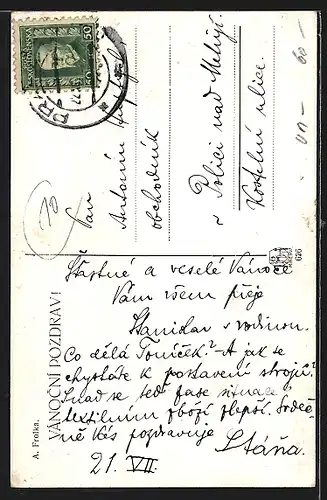 A. Frolka.
VÁNOČNÍ POZDRAV!
Šťastné a veselé Vánoce
Vám všem přeje
Stanislav s rodinou.
Co dělá Toníček? A jak se
chystáte k postavení strojů?
Snad se teď zase situace v
textilním zboží zlepší. Srdeč-
ně Vás pozdravuje
Stáňa.
21. VII.
Pan
Antonín
obchodník
v Polici nad Metují.
Kostelní ulice.
50 50
PR
626
60